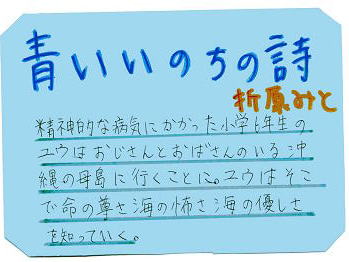 青いいのちの詩
折原みと
精神的な病気にかかった小学6年生の
ユウはおじさんとおばさんのいる沖
縄の母島に行くことに。ユウはそこ
で命の尊さ海の怖さ海の優しさ
を知っていく。